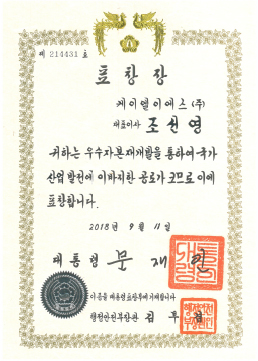 제 214431 호
표 창 장
케이엘이에스 (주)
대표이사 조선영
귀하는 우수자본재개발을 통하여 국가
산업발전에 이바지한 공로가 크므로 이에
표창합니다.
2018년 9월 11일
대통령 문재인
이 증을 대통령표창부에 기재합니다.
행정안전부장관 김부겸